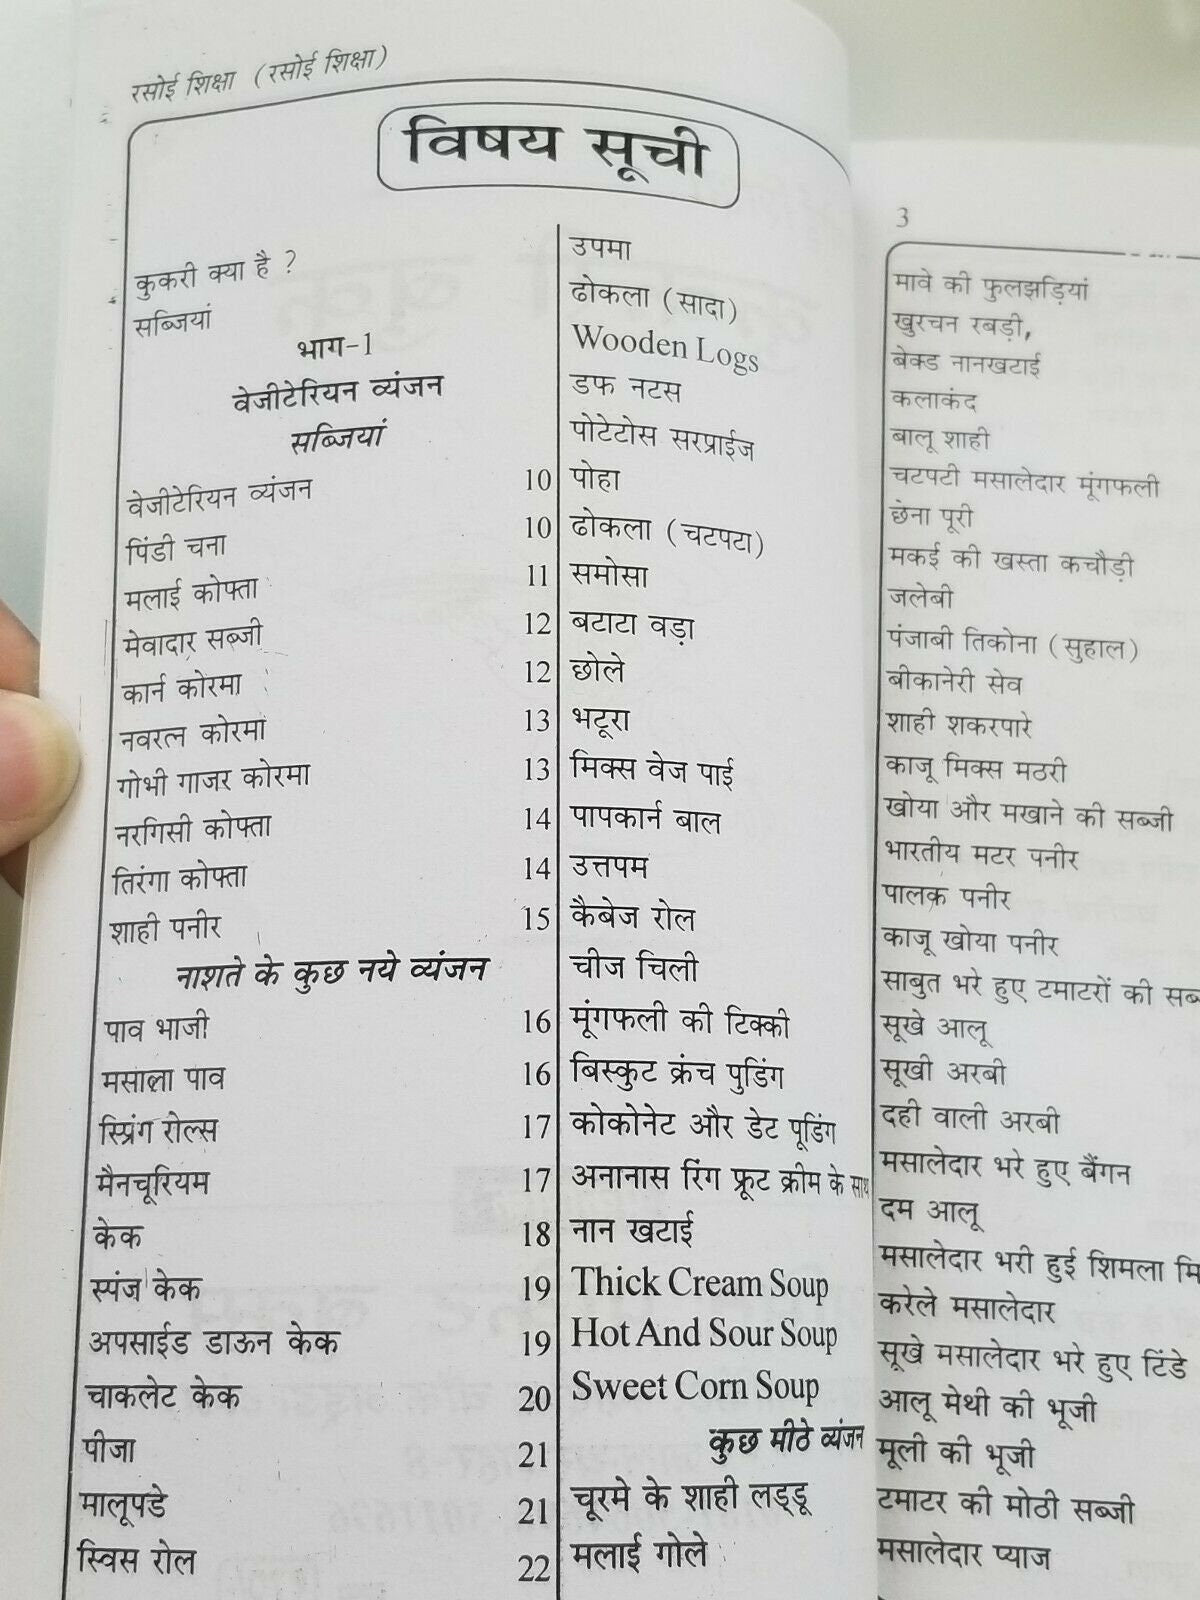 रसोई शिक्षा (रसोई शिक्षा)
विषय सूची
कुकरी क्या है ?
सब्जियां
भाग-1
वेजीटेरियन व्यंजन
सब्जियां
वेजीटेरियन व्यंजन 10
पिंडी चना 10
मलाई कोफ्ता 11
मेवादार सब्जी 12
कार्न कोरमा 12
नवरत्न कोरमा 13
गोभी गाजर कोरमा 13
नरगिसी कोफ्ता 14
तिरंगा कोफ्ता 14
शाही पनीर 15
नाशते के कुछ नये व्यंजन
पाव भाजी 16
मसाला पाव 16
स्प्रिंग रोल्स 17
मैनचूरियम 17
केक 18
स्पंज केक 19
अपसाईड डाऊन केक 19
चाकलेट केक 20
पीजा 21
मालूपडे 21
स्विस रोल 22
उपमा
ढोकला (सादा)
Wooden Logs
डफ नटस
पोटेटोस सरप्राईज
पोहा
ढोकला (चटपटा)
समोसा
बटाटा वड़ा
छोले
भटूरा
मिक्स वेज पाई
पापकार्न बाल
उत्तपम
कैबेज रोल
चीज चिली
मूंगफली की टिक्की
बिस्कुट क्रंच पुडिंग
कोकोनेट और डेट पूडिंग
अनानास रिंग फ्रूट क्रीम के साथ
नान खटाई
Thick Cream Soup
Hot And Sour Soup
Sweet Corn Soup
कुछ मीठे व्यंजन
चूरमे के शाही लड्डू
मलाई गोले
3
मावे की फुलझड़ियां
खुरचन रबड़ी,
बेक्ड नानखटाई
कलाकंद
बालू शाही
चटपटी मसालेदार मूंगफली
छेना पूरी
मकई की खस्ता कचौड़ी
जलेबी
पंजाबी तिकोना (सुहाल)
बीकानेरी सेव
शाही शकरपारे
काजू मिक्स मठरी
खोया और मखाने की सब्जी
भारतीय मटर पनीर
पालक पनीर
काजू खोया पनीर
साबुत भरे हुए टमाटरों की
सूखे आलू
सूखी अरबी
दही वाली अरबी
मसालेदार भरे हुए बैंगन
दम आलू
मसालेदार भरी हुई शिमला
करेले मसालेदार
सूखे मसालेदार भरे हुए टिंडे
आलू मेथी की भूजी
मूली की भूजी
टमाटर की मोठी सब्जी
मसालेदार प्याज